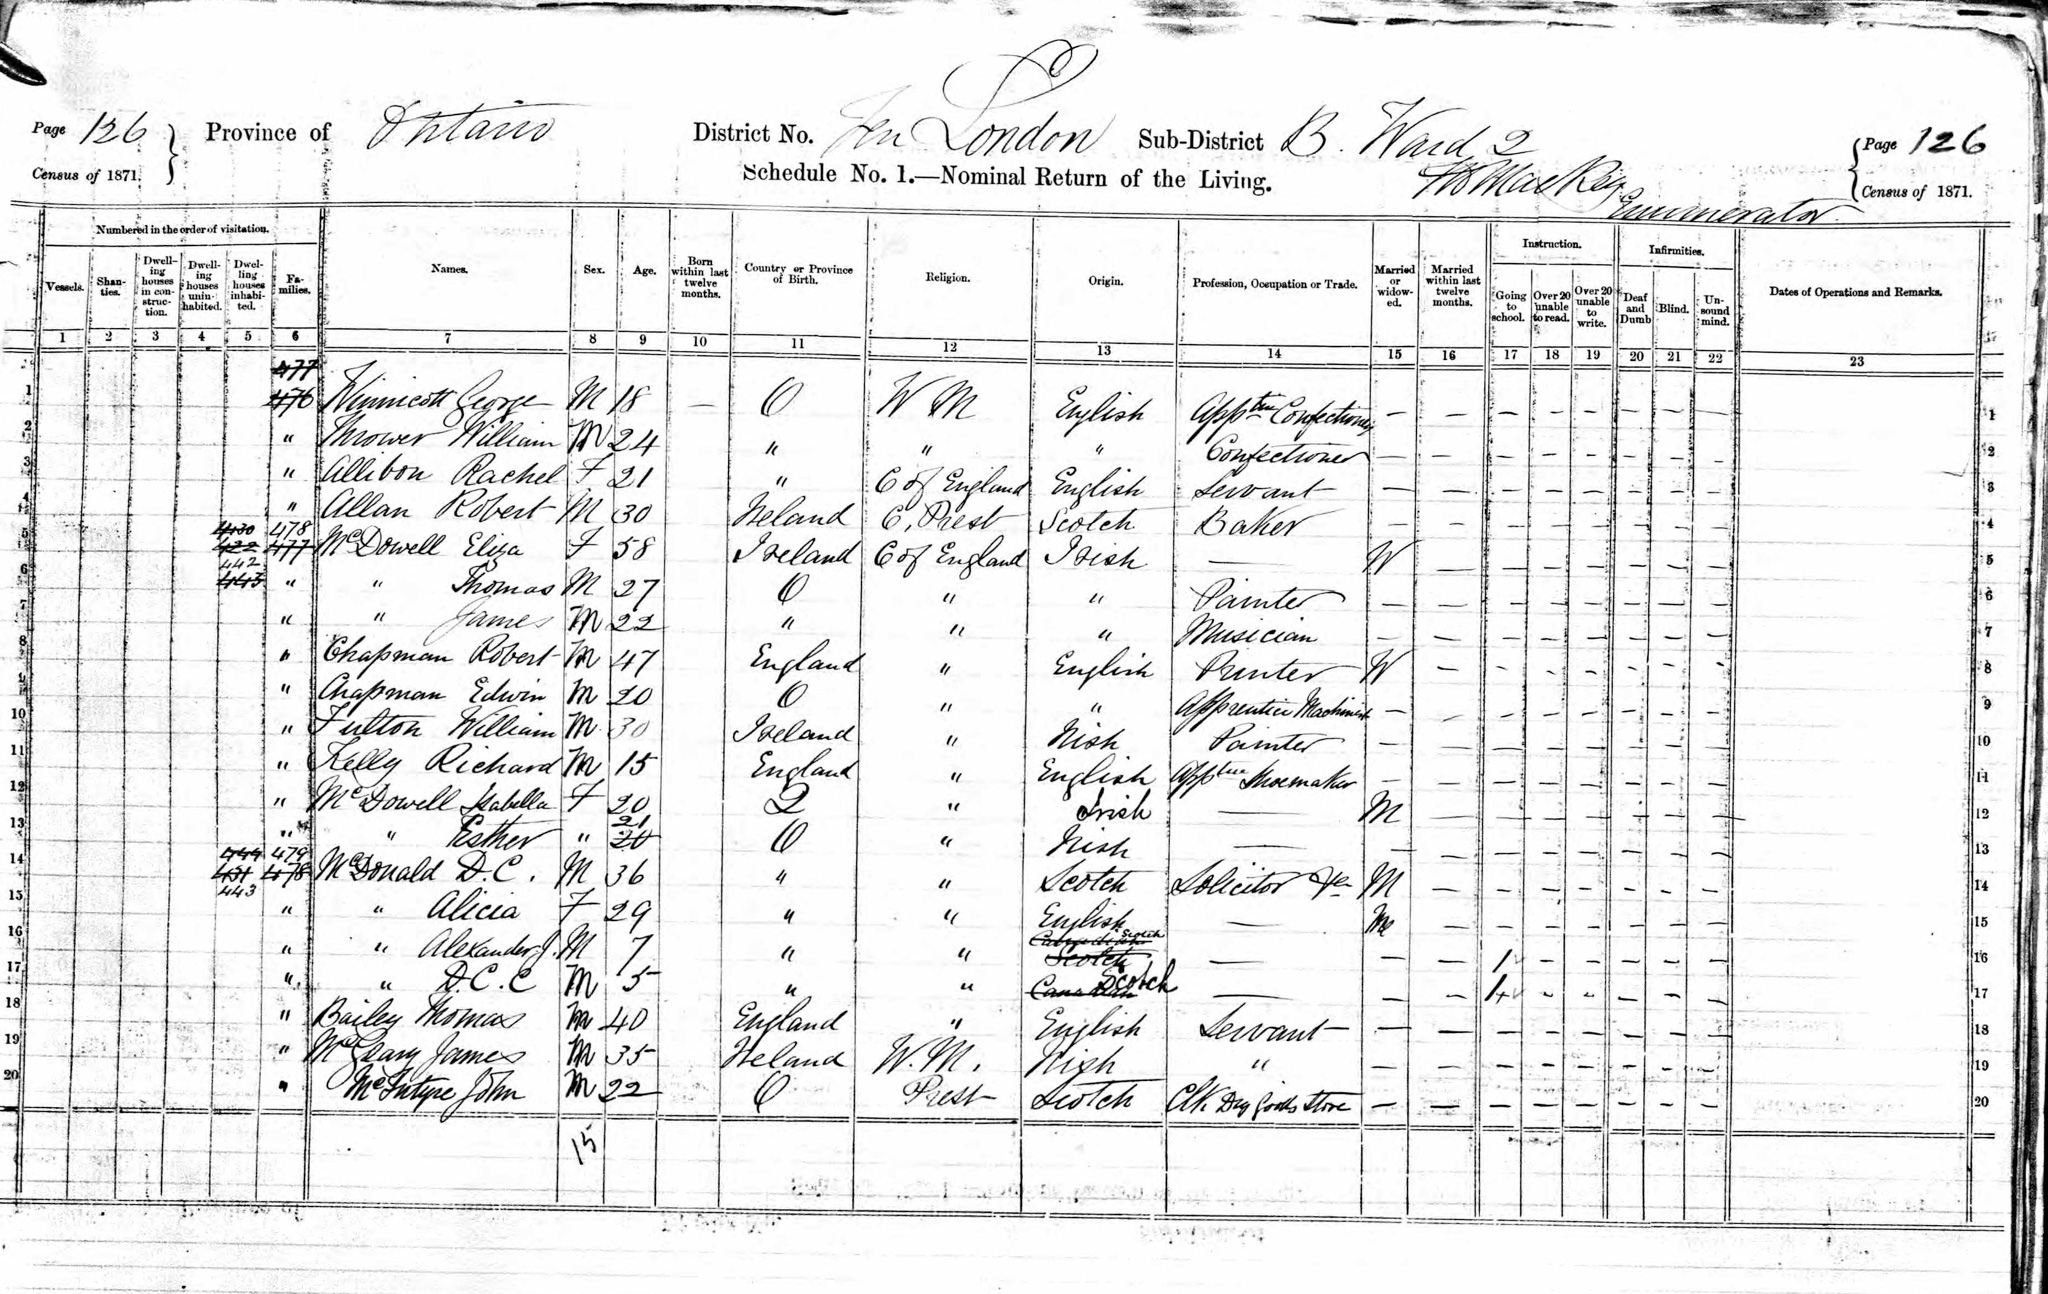 Page 126 Province of Ontario District No. Ten London Sub-District B. Ward 2 Page 126
Census of 1871. Schedule No. 1.—Nominal Return of the Living. Census of 1871.
Enumerator
Numbered in the order of visitation. Instruction. Infirmities.
Vessels. Shanties. Dwelling houses in construction. Dwelling houses uninhabited. Dwelling houses inhabited. Families. Names. Sex. Age. Born within last twelve months. Country or Province of Birth. Religion. Origin. Profession, Occupation or Trade. Married or widowed. Married within last twelve months. Going to school. Over 20 unable to read. Over 20 unable to write. Deaf and Dumb Blind. Unsound mind. Dates of Operations and Remarks.
1 2 3 4 5 6 7 8 9 10 11 12 13 14 15 16 17 18 19 20 21 22 23
477
1 476 Winnicott George M 18 — O W M English Apptice Confectioner — — — — — — — — 1
2 " Thrower William M 24 " " " Confectioner — — — — — — — — 2
3 " Allibon Rachel F 21 " C of England English Servant — — — — — — — — 3
4 " Allan Robert M 30 Ireland C. Prest Scotch Baker — — — — — — — — 4
430 478
5 422 477 McDowell Eliza F 58 Ireland C of England Irish — W — — — — — — — 5
442
6 443 " " Thomas M 27 O " " Painter — — — — — — — — 6
7 " " James M 22 " " " Musician — — — — — — — — 7
8 " Chapman Robert M 47 England " English Printer W — — — — — — — 8
9 " Chapman Edwin M 20 O " " Apprentice Machinist — — — — — — — — 9
10 " Fulton William M 30 Ireland " Irish Painter — — — — — — — — 10
11 " Kelly Richard M 15 England " English Apptice Shoemaker — — — — — — — — 11
12 " McDowell Isabella F 20 Q " Irish — M — — — — — — — 12
21
13 " " Esther " 20 O " Irish — — — — — — — — — 13
444 479
14 431 478 McDonald D.C. M 36 " " Scotch Solicitor &c M — — — — — — — 14
443
15 " " Alicia F 29 " " English — M — — — — — — — 15
Scotch
16 " " Alexander J. M 7 " " Scotch — — — 1 — — — — — 16
17 " " D.C.C M 5 " " Canadian Scotch — — — 1 — — — — — 17
18 " Bailey Thomas M 40 England " English Servant — — — — — — — — 18
19 " McGary James M 35 Ireland W.M. Irish " — — — — — — — — 19
20 " McIntyre John M 22 O Prest Scotch Clk Dry Goods Store — — — — — — — — 20
15